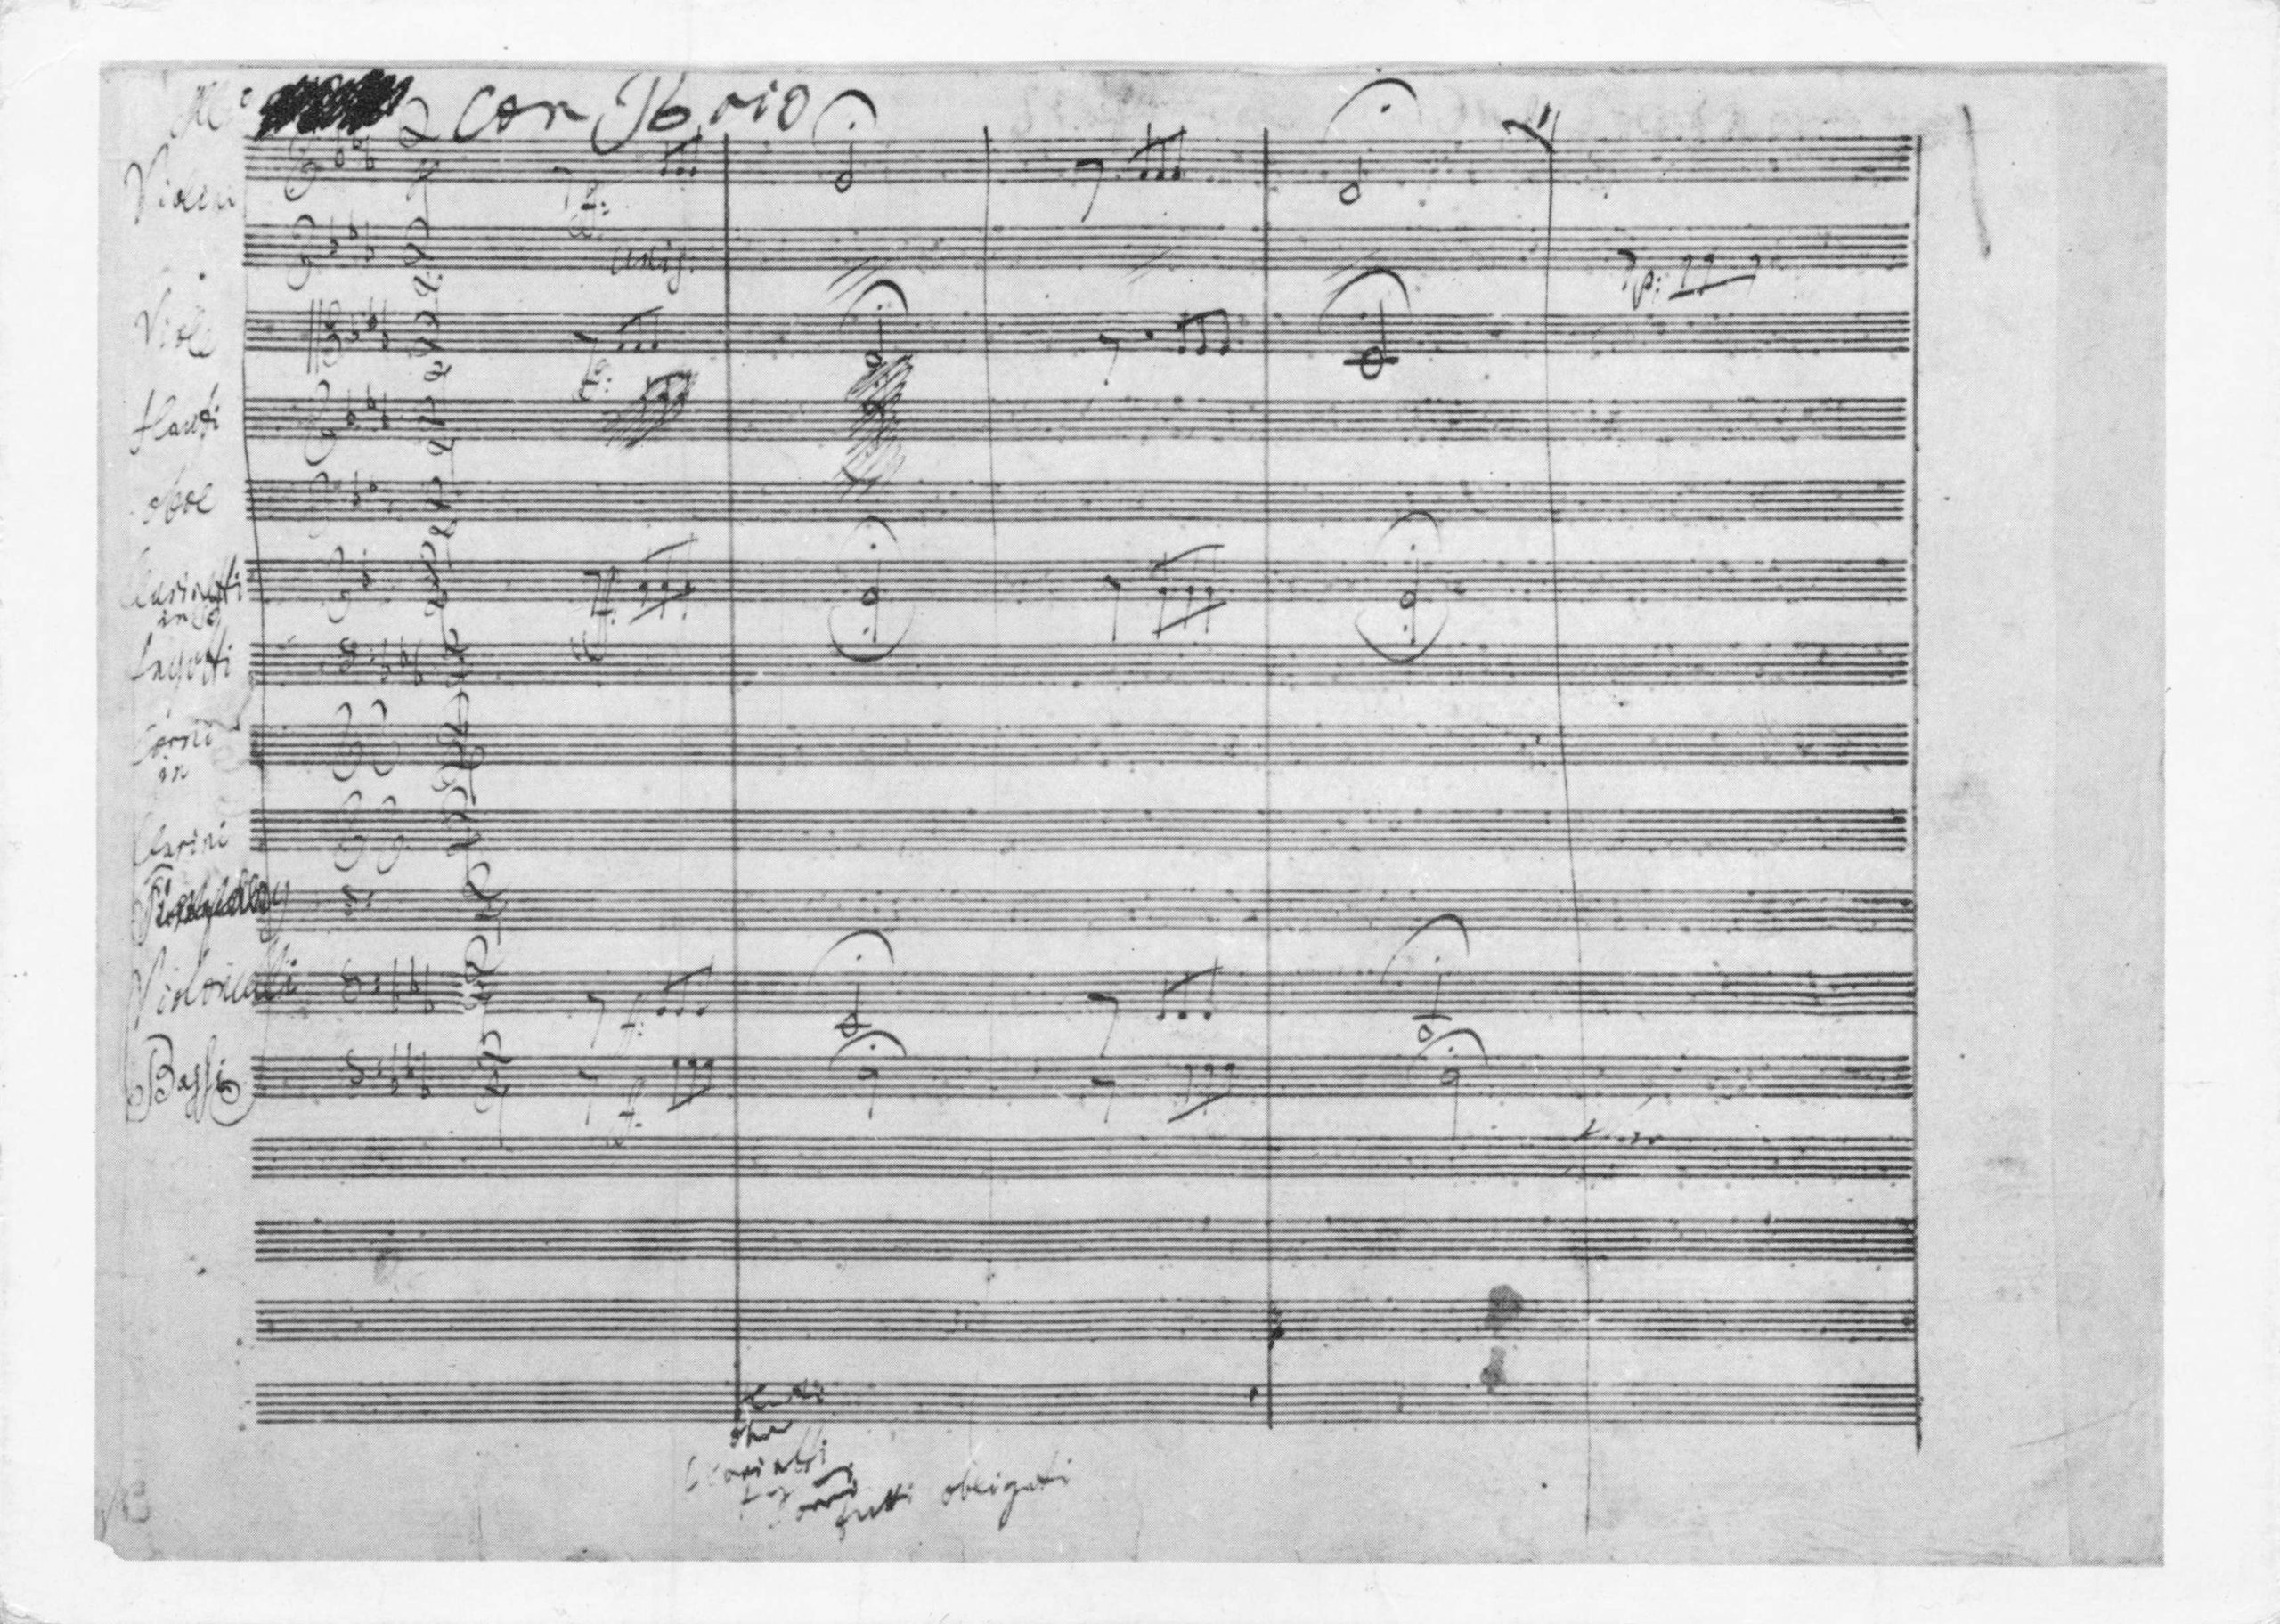 All:o con Brio
Violini
unis:
Viole
flauti
oboe
Clarinetti
in B
fagotti
Corni
in
Clarini
Violoncelli
Bassi
flauti
oboe
Clarinetti
Corni
tutti obligati